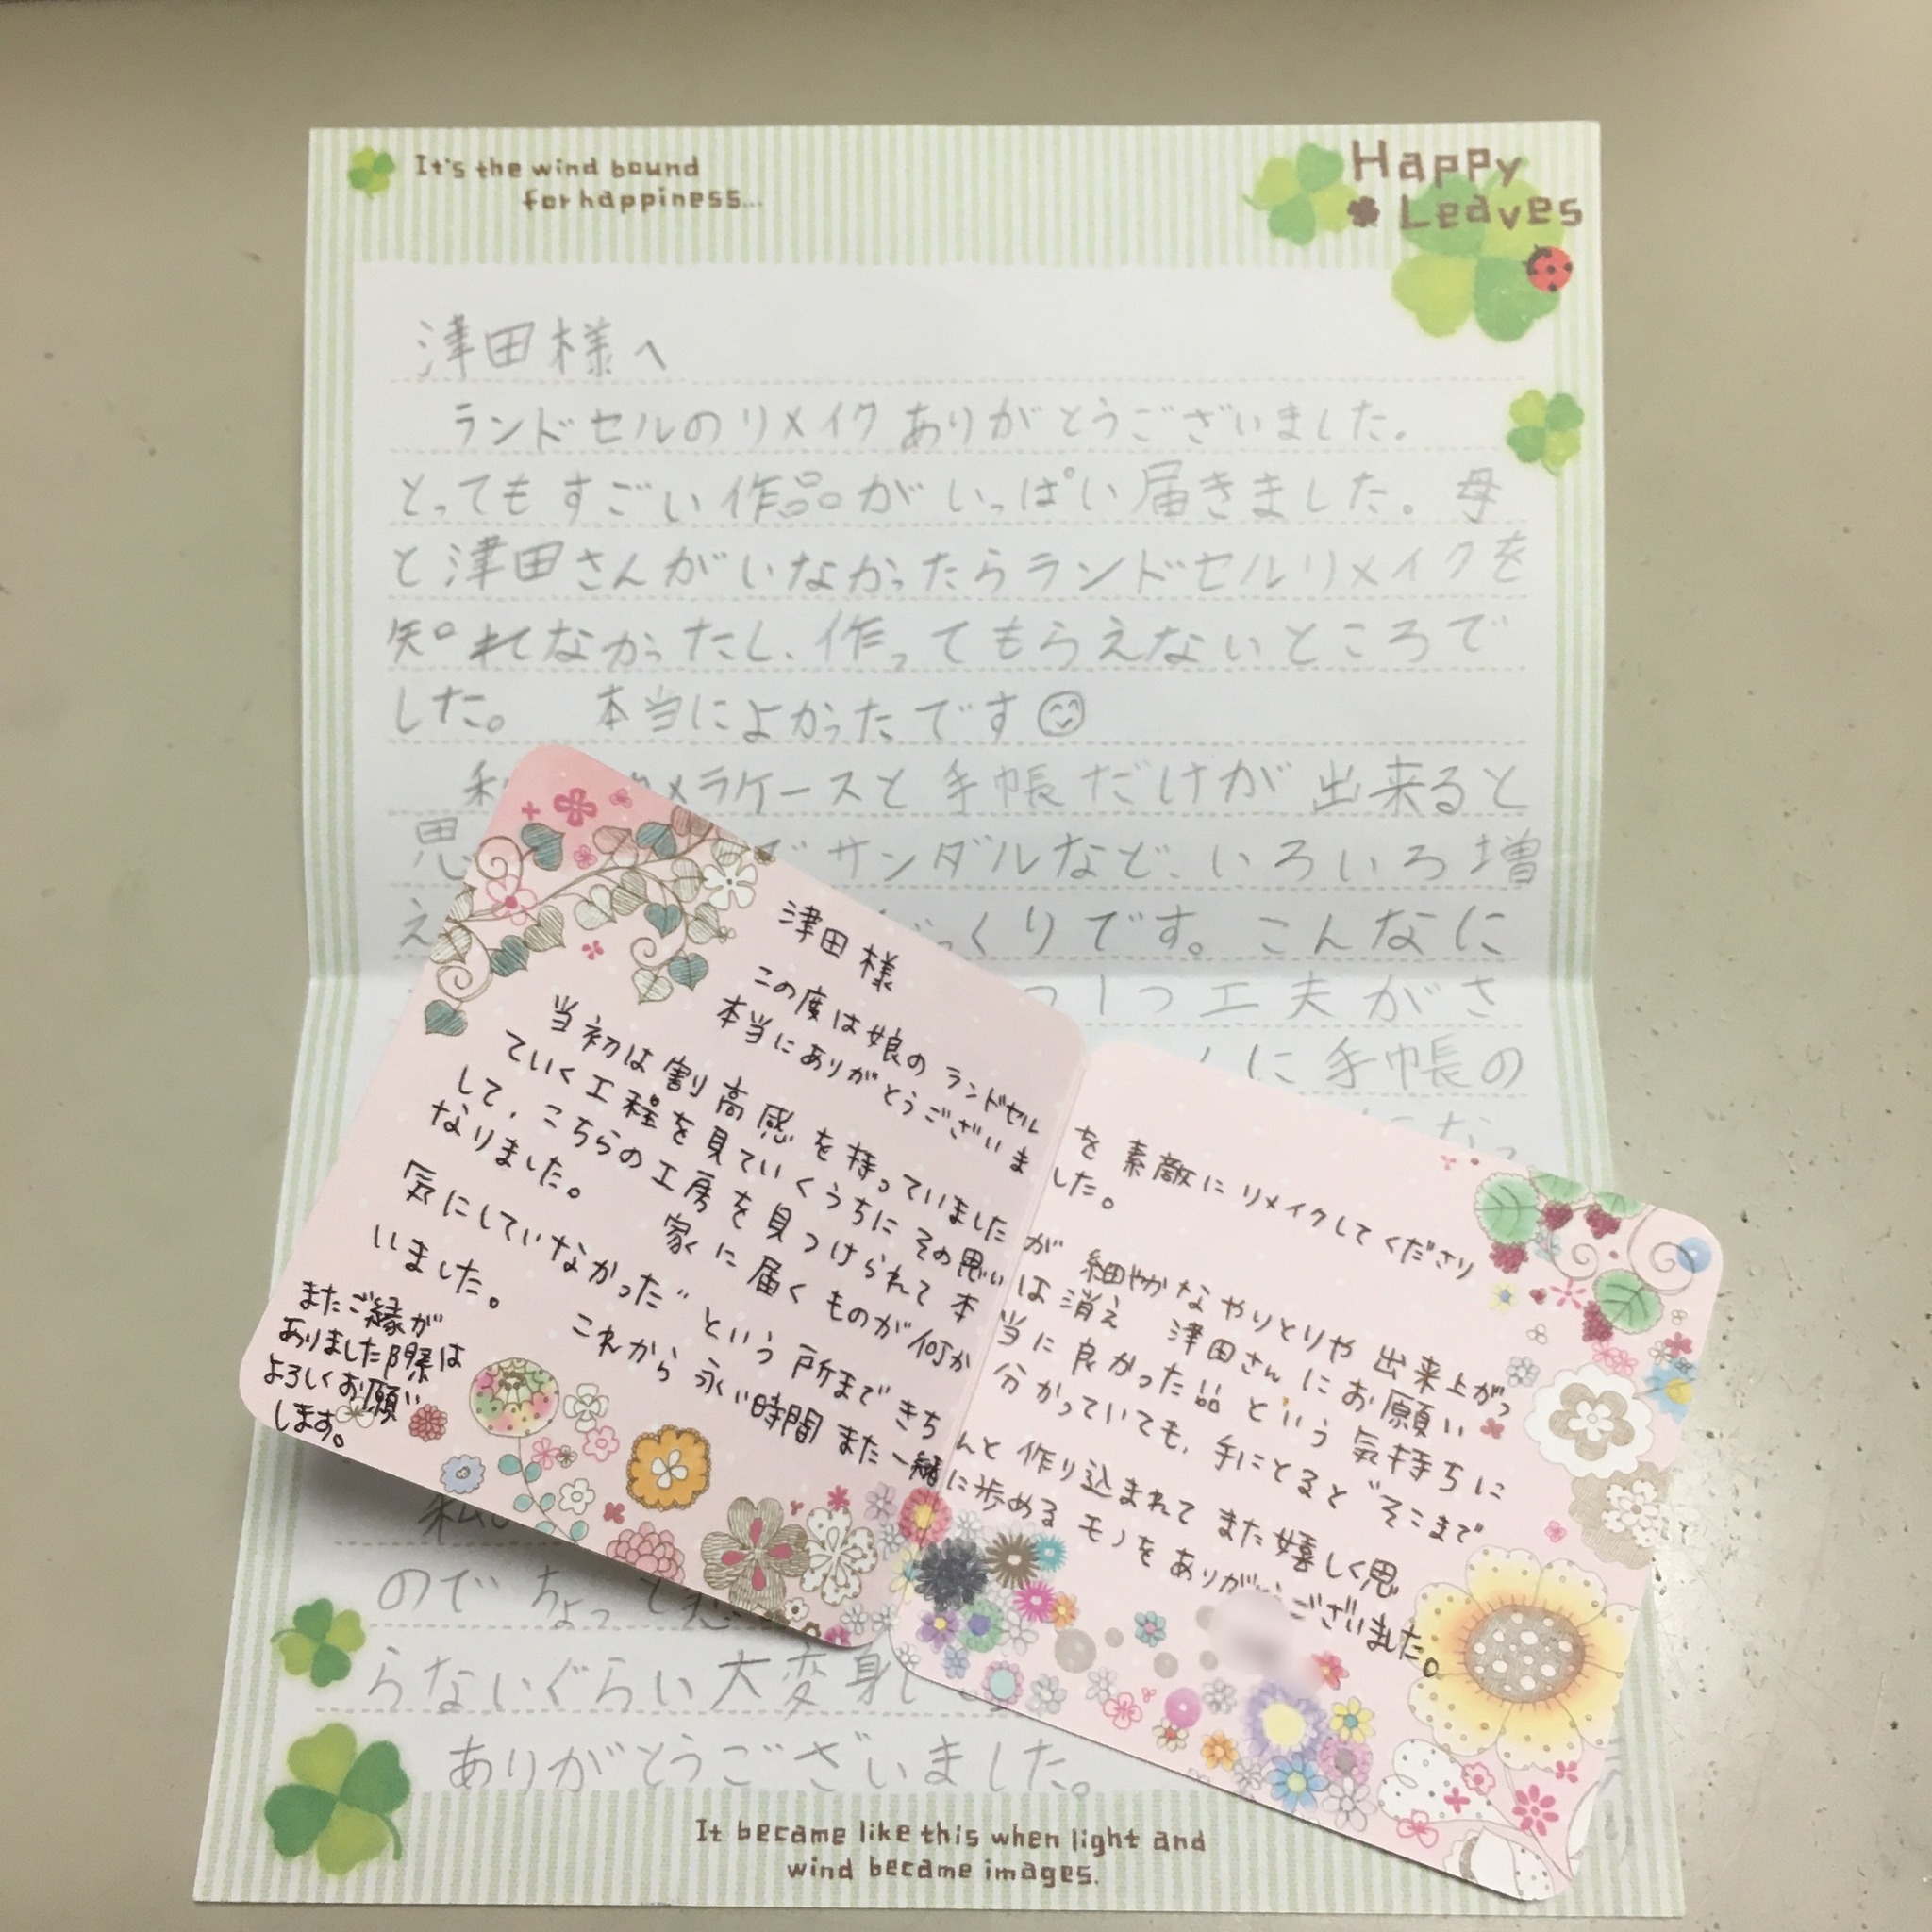 It's the wind bound
for happiness...
Happy
Leaves
津田様へ
ランドセルのリメイクありがとうございました。
とってもすごい作品がいっぱい届きました。母
と津田さんがいなかったらランドセルリメイクを
知れなかったし、作ってもらえないところで
した。 本当によかったです
私 メラケースと手帳だけが出来ると
思 でサンダルなど、いろいろ増
え っくりです。こんなに
つ1つ工夫がさ
に手帳の
なっ
私
のでちょっと
らないぐらい大変身し
ありがとうございました。
It became like this when light and
wind became images.
津田様
この度は娘のランドセルを素敵にリメイクしてくださり
本当にありがとうございました。
当初は割高感を持っていましたが 細やかなやりとりや出来上がっ
ていく工程を見ていくうちにその思いは消え 津田さんにお願い
して、こちらの工房を見つけられて本当に良かった品という気持ちに
なりました。 家に届くものが何か分かっていても、手にとると“そこまで
気にしていなかった”という所まできちんと作り込まれてまた嬉しく思
いました。 これから永い時間また一緒に歩めるモノをありが ございました。
またご縁が
ありました際は
よろしくお願い
します。